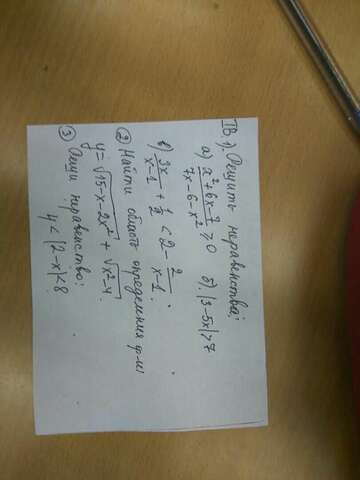 IВ 1). Решить неравенства:
а) x²+6x-7/7x-6-x² ≥ 0 б). |3-5x|>7
в) 3x/x-1 + 1/2 < 2 - 2/x-1.
② Найти область определения ф-ии
y=√15-x-2x² + √x²-4
③ Реши неравенство:
4 < |2-x| < 8